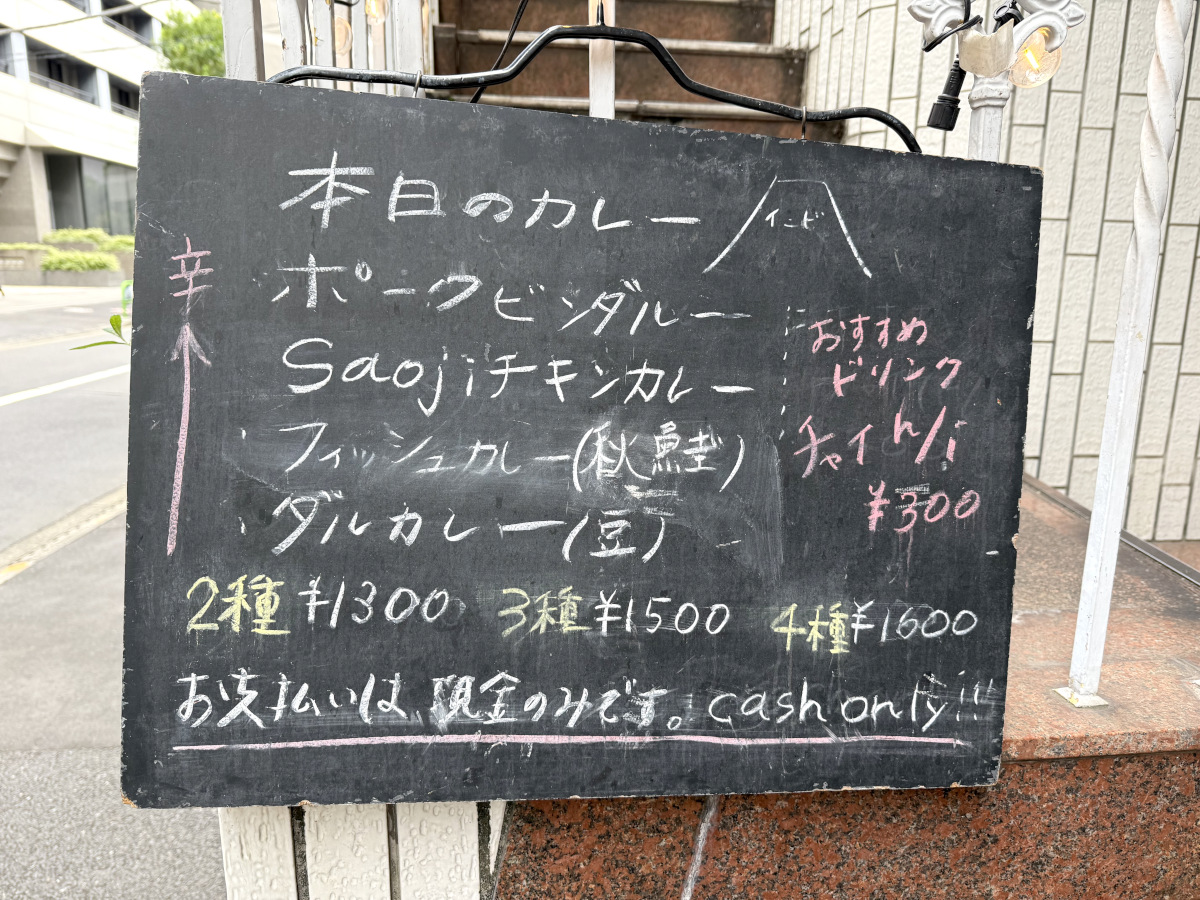 本日のカレー
インド
辛
ポークビンダルー
Saojiチキンカレー
フィッシュカレー(秋鮭)
ダルカレー(豆)
おすすめ
ドリンク
チャイ h/i
¥300
2種 ¥1300 3種 ¥1500 4種 ¥1600
お支払いは 現金のみです。cash only!!